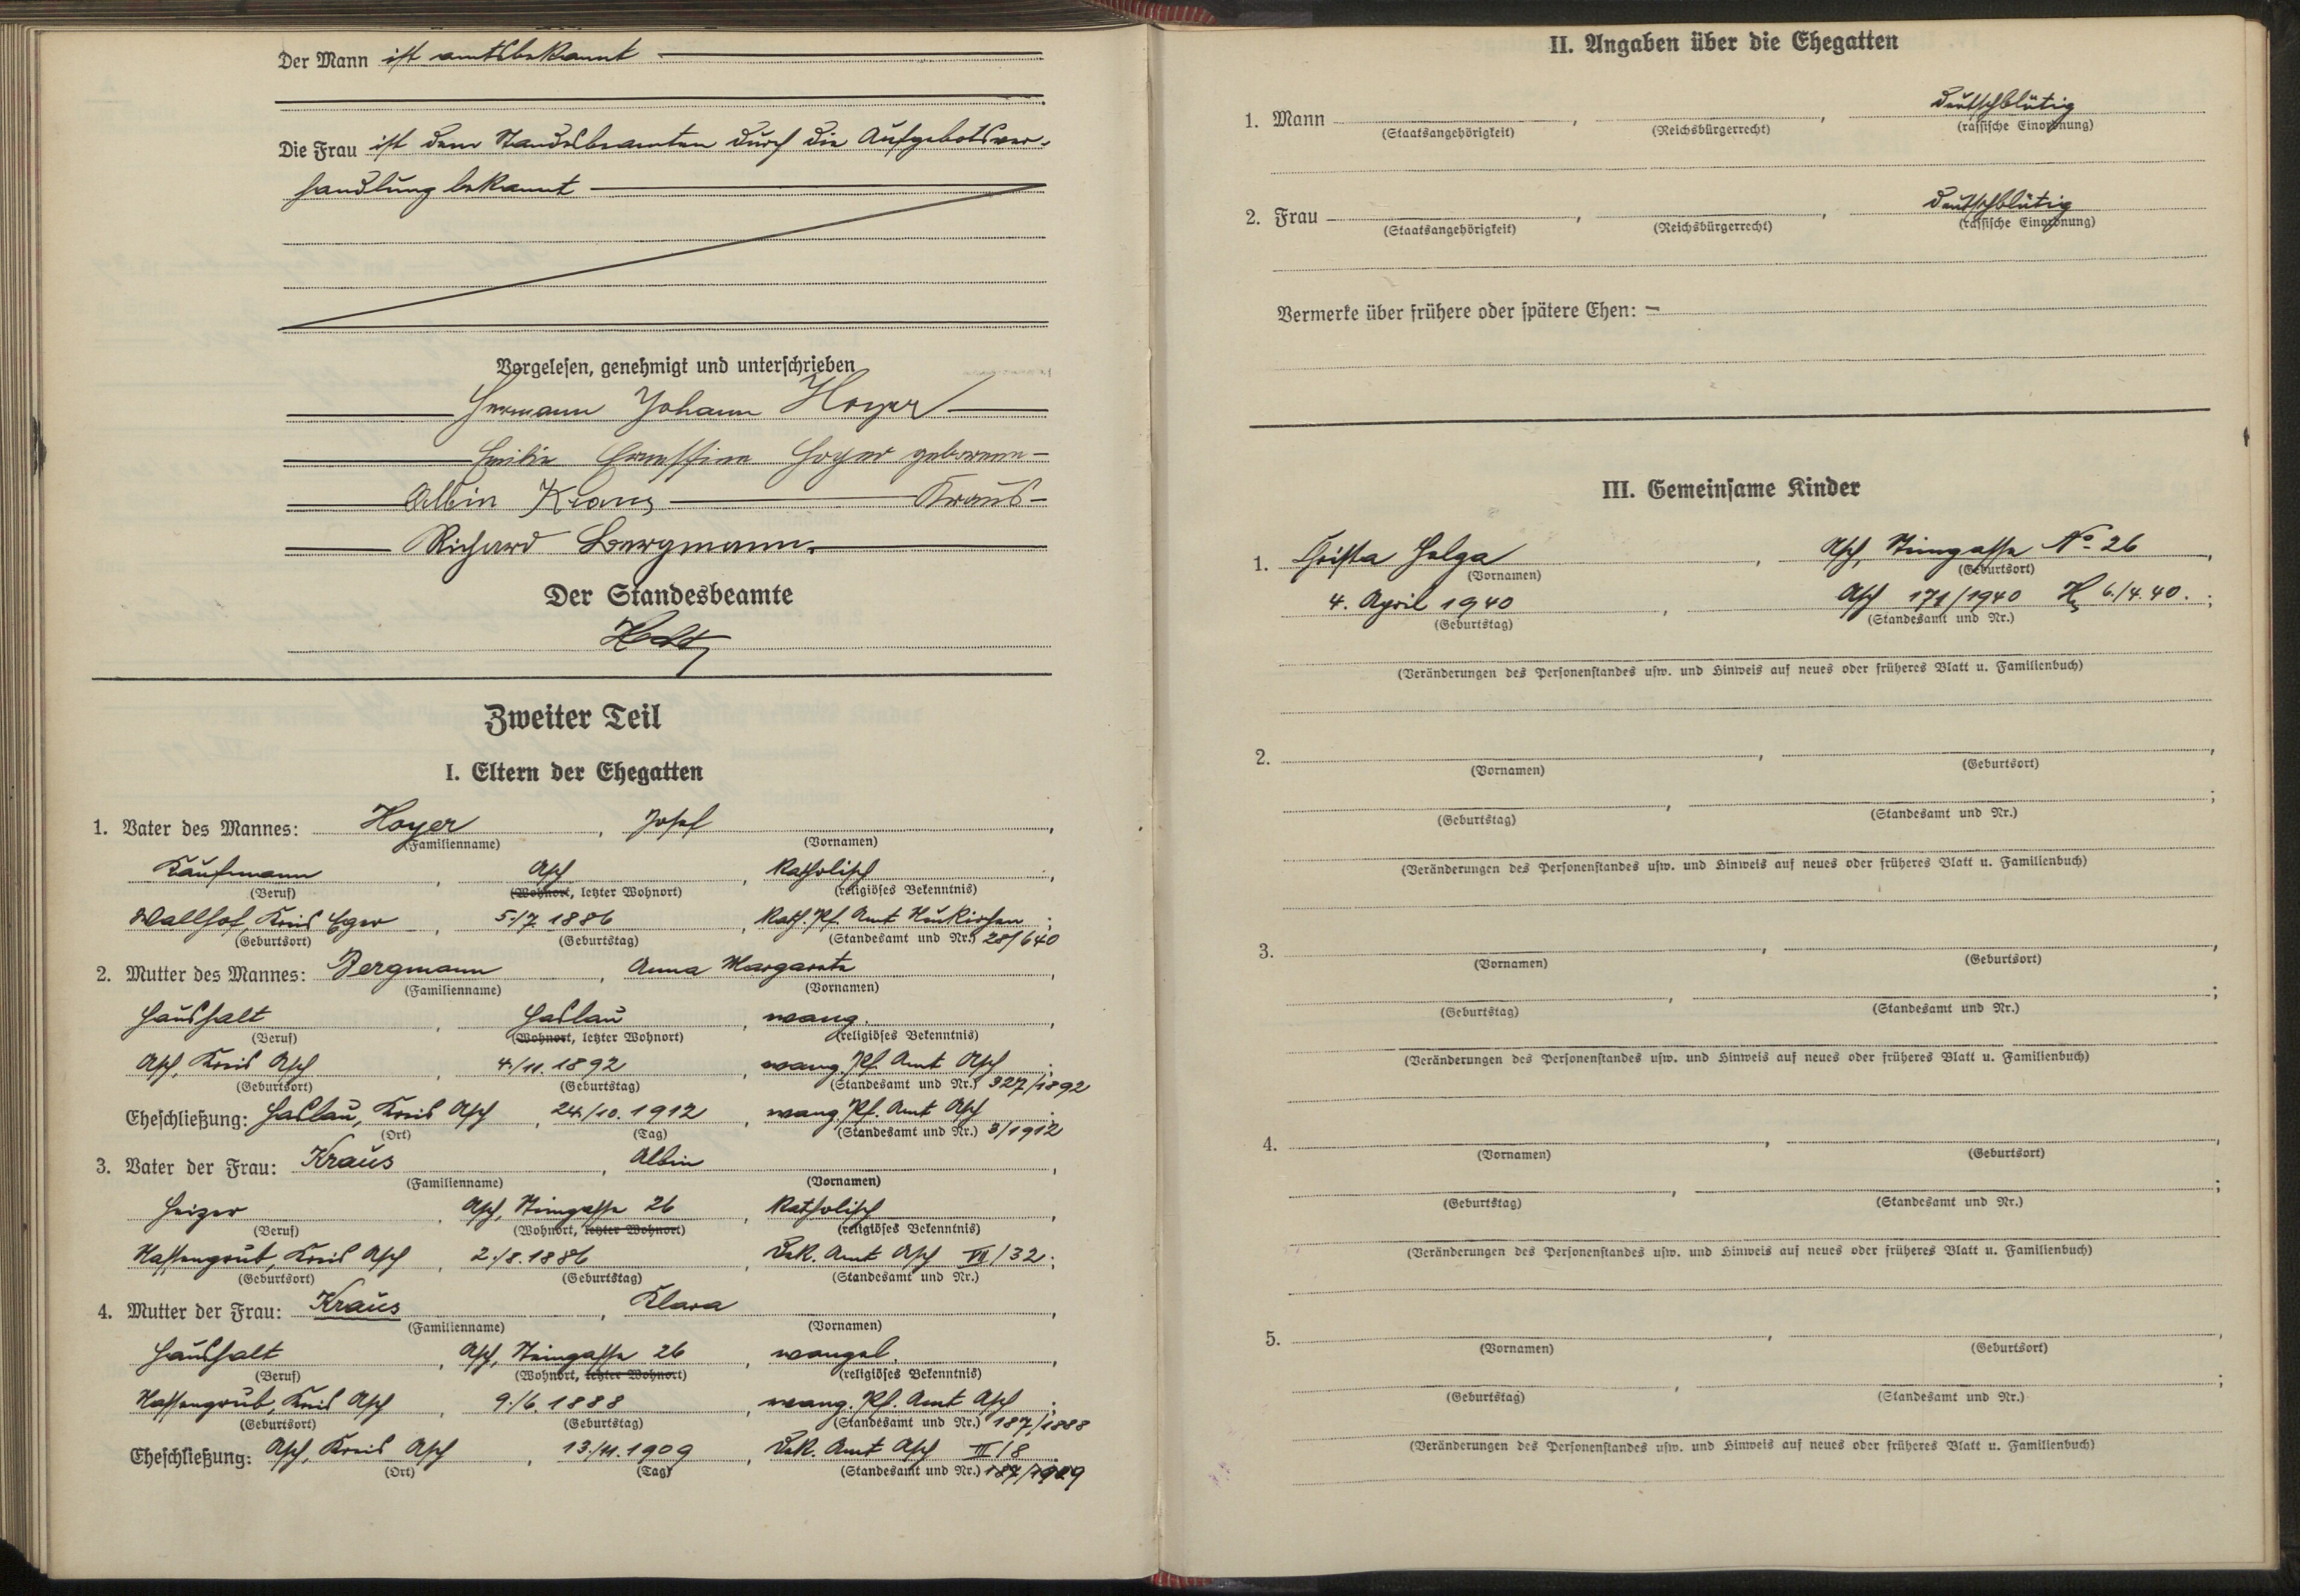 Der Mann ist amtsbekannt
Die Frau ist dem Standesbeamten durch die Aufgebotsver-
handlung bekannt
Vorgelesen, genehmigt und unterschrieben
Hermann Johann Hoyer
Emilie Ernestine Hoyer geborene
Albin Kraus Kraus
Richard Bergmann.
Der Standesbeamte
Zweiter Teil
I. Eltern der Ehegatten
1. Vater des Mannes: Hoyer, Josef,
(Familienname) (Vornamen)
Kaufmann, Asch, katholisch,
(Beruf) (Wohnort, letzter Wohnort) (religiöses Bekenntnis)
Wallhof, Kreis Eger, 5./7. 1886, Kath. Pf. Amt Neukirchen;
(Geburtsort) (Geburtstag) (Standesamt und Nr.) 28/640
2. Mutter des Mannes: Bergmann, Anna Margareta,
(Familienname) (Vornamen)
Haushalt, Haslau, evang.,
(Beruf) (Wohnort, letzter Wohnort) (religiöses Bekenntnis)
Asch, Kreis Asch, 4./11. 1892, evang. Pf. Amt Asch;
(Geburtsort) (Geburtstag) (Standesamt und Nr.) 327/1892
Eheschließung: Haslau, Kreis Asch, 24./10. 1912, evang. Pf. Amt Asch.
(Ort) (Tag) (Standesamt und Nr.) 3/1912
3. Vater der Frau: Kraus, Albin,
(Familienname) (Vornamen)
Heizer, Asch, Steingasse 26, katholisch,
(Beruf) (Wohnort, letzter Wohnort) (religiöses Bekenntnis)
Nassengrub, Kreis Asch, 2./8. 1886, Dek. Amt Asch VII/32;
(Geburtsort) (Geburtstag) (Standesamt und Nr.)
4. Mutter der Frau: Kraus, Klara,
(Familienname) (Vornamen)
Haushalt, Asch, Steingasse 26, evangel.,
(Beruf) (Wohnort, letzter Wohnort) (religiöses Bekenntnis)
Nassengrub, Kreis Asch, 9./6. 1888, evang. Pf. Amt Asch;
(Geburtsort) (Geburtstag) (Standesamt und Nr.) 187/1888
Eheschließung: Asch, Kreis Asch, 13./11. 1909, Dek. Amt Asch III/8.
(Ort) (Tag) (Standesamt und Nr.) 187/1909
II. Angaben über die Ehegatten
1. Mann , , deutschblütig
(Staatsangehörigkeit) (Reichsbürgerrecht) (rassische Einordnung)
2. Frau , , deutschblütig
(Staatsangehörigkeit) (Reichsbürgerrecht) (rassische Einordnung)
Vermerke über frühere oder spätere Ehen: —
III. Gemeinsame Kinder
1. Christa Helga, Asch, Steingasse No. 26,
(Vornamen) (Geburtsort)
4. April 1940, Asch 171/1940 6./4. 40.;
(Geburtstag) (Standesamt und Nr.)
(Veränderungen des Personenstandes usw. und Hinweis auf neues oder früheres Blatt u. Familienbuch)
2. , ,
(Vornamen) (Geburtsort)
, ;
(Geburtstag) (Standesamt und Nr.)
(Veränderungen des Personenstandes usw. und Hinweis auf neues oder früheres Blatt u. Familienbuch)
3. , ,
(Vornamen) (Geburtsort)
, ;
(Geburtstag) (Standesamt und Nr.)
(Veränderungen des Personenstandes usw. und Hinweis auf neues oder früheres Blatt u. Familienbuch)
4. , ,
(Vornamen) (Geburtsort)
, ;
(Geburtstag) (Standesamt und Nr.)
(Veränderungen des Personenstandes usw. und Hinweis auf neues oder früheres Blatt u. Familienbuch)
5. , ,
(Vornamen) (Geburtsort)
, ;
(Geburtstag) (Standesamt und Nr.)
(Veränderungen des Personenstandes usw. und Hinweis auf neues oder früheres Blatt u. Familienbuch)